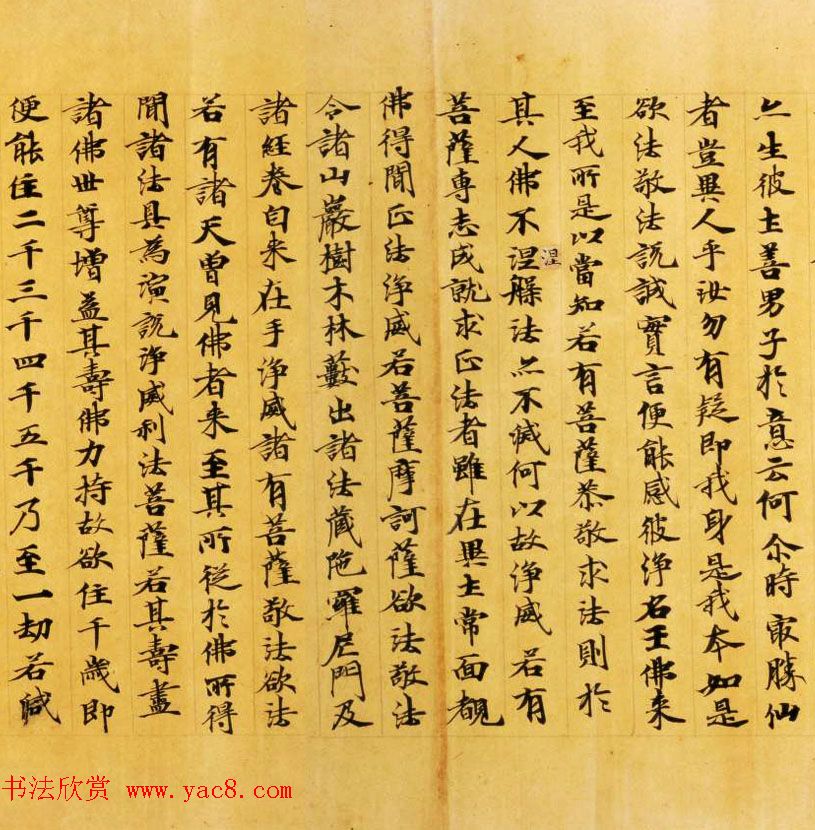 亦生彼土善男子於意云何尒時㝡勝仙
者豈異人乎汝勿有疑即我身是我本如是
欲法敬法說誠實言便能感彼淨名王佛来
至我所是以當知若有菩薩恭敬求法則於
其人佛不涅槃法亦不滅何以故淨威若有
涅
菩薩專志成就求正法者雖在異土常面覩
佛得聞正法淨威若菩薩摩訶薩欲法敬法
令諸山巖樹木林藪出諸法蔵陁羅尼門及
諸経卷自来在手淨威諸有菩薩敬法欲法
若有諸天曾見佛者来至其所從於佛所得
聞諸法具為演說淨威利法菩薩若其壽盡
諸佛世尊增益其壽佛力持故欲住千歲即
便能住二千三千四千五千乃至一劫若減
书法欣赏 www.yac8.com